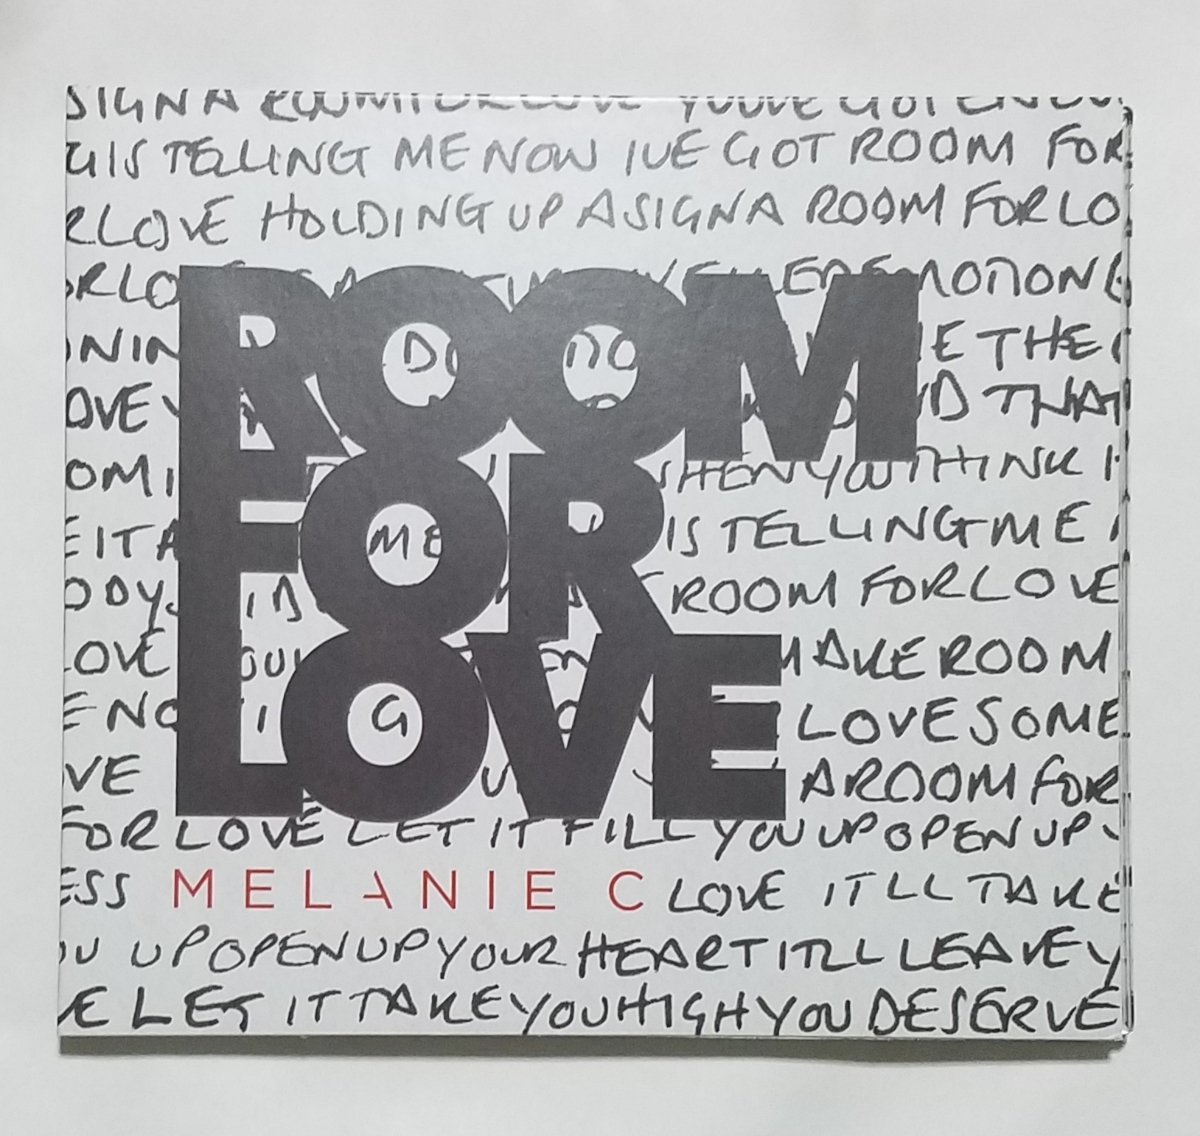 SIGN A ROOM FOR LOVE YOUVE GOT
G IS TELLING ME NOW IVE GOT ROOM FOR
R LOVE HOLDING UP A SIGN A ROOM FOR LO
RLO EMOTION
NIN E THE
OVE THAT
OM WHEN YOU THINK
E IT A ME IS TELLING ME
ODY ROOM FOR LOVE
LOVE MAKE ROOM
E NO G LOVE SOME
VE A ROOM FOR
ROOM
FOR
LOVE
FOR LOVE LET IT FILL YOU UP OPEN UP
ESS MELANIE C LOVE ITLL TAKE
OU UP OPEN UP YOUR HEART ITLL LEAVE Y
E LET IT TAKE YOU HIGH YOU DESERVE